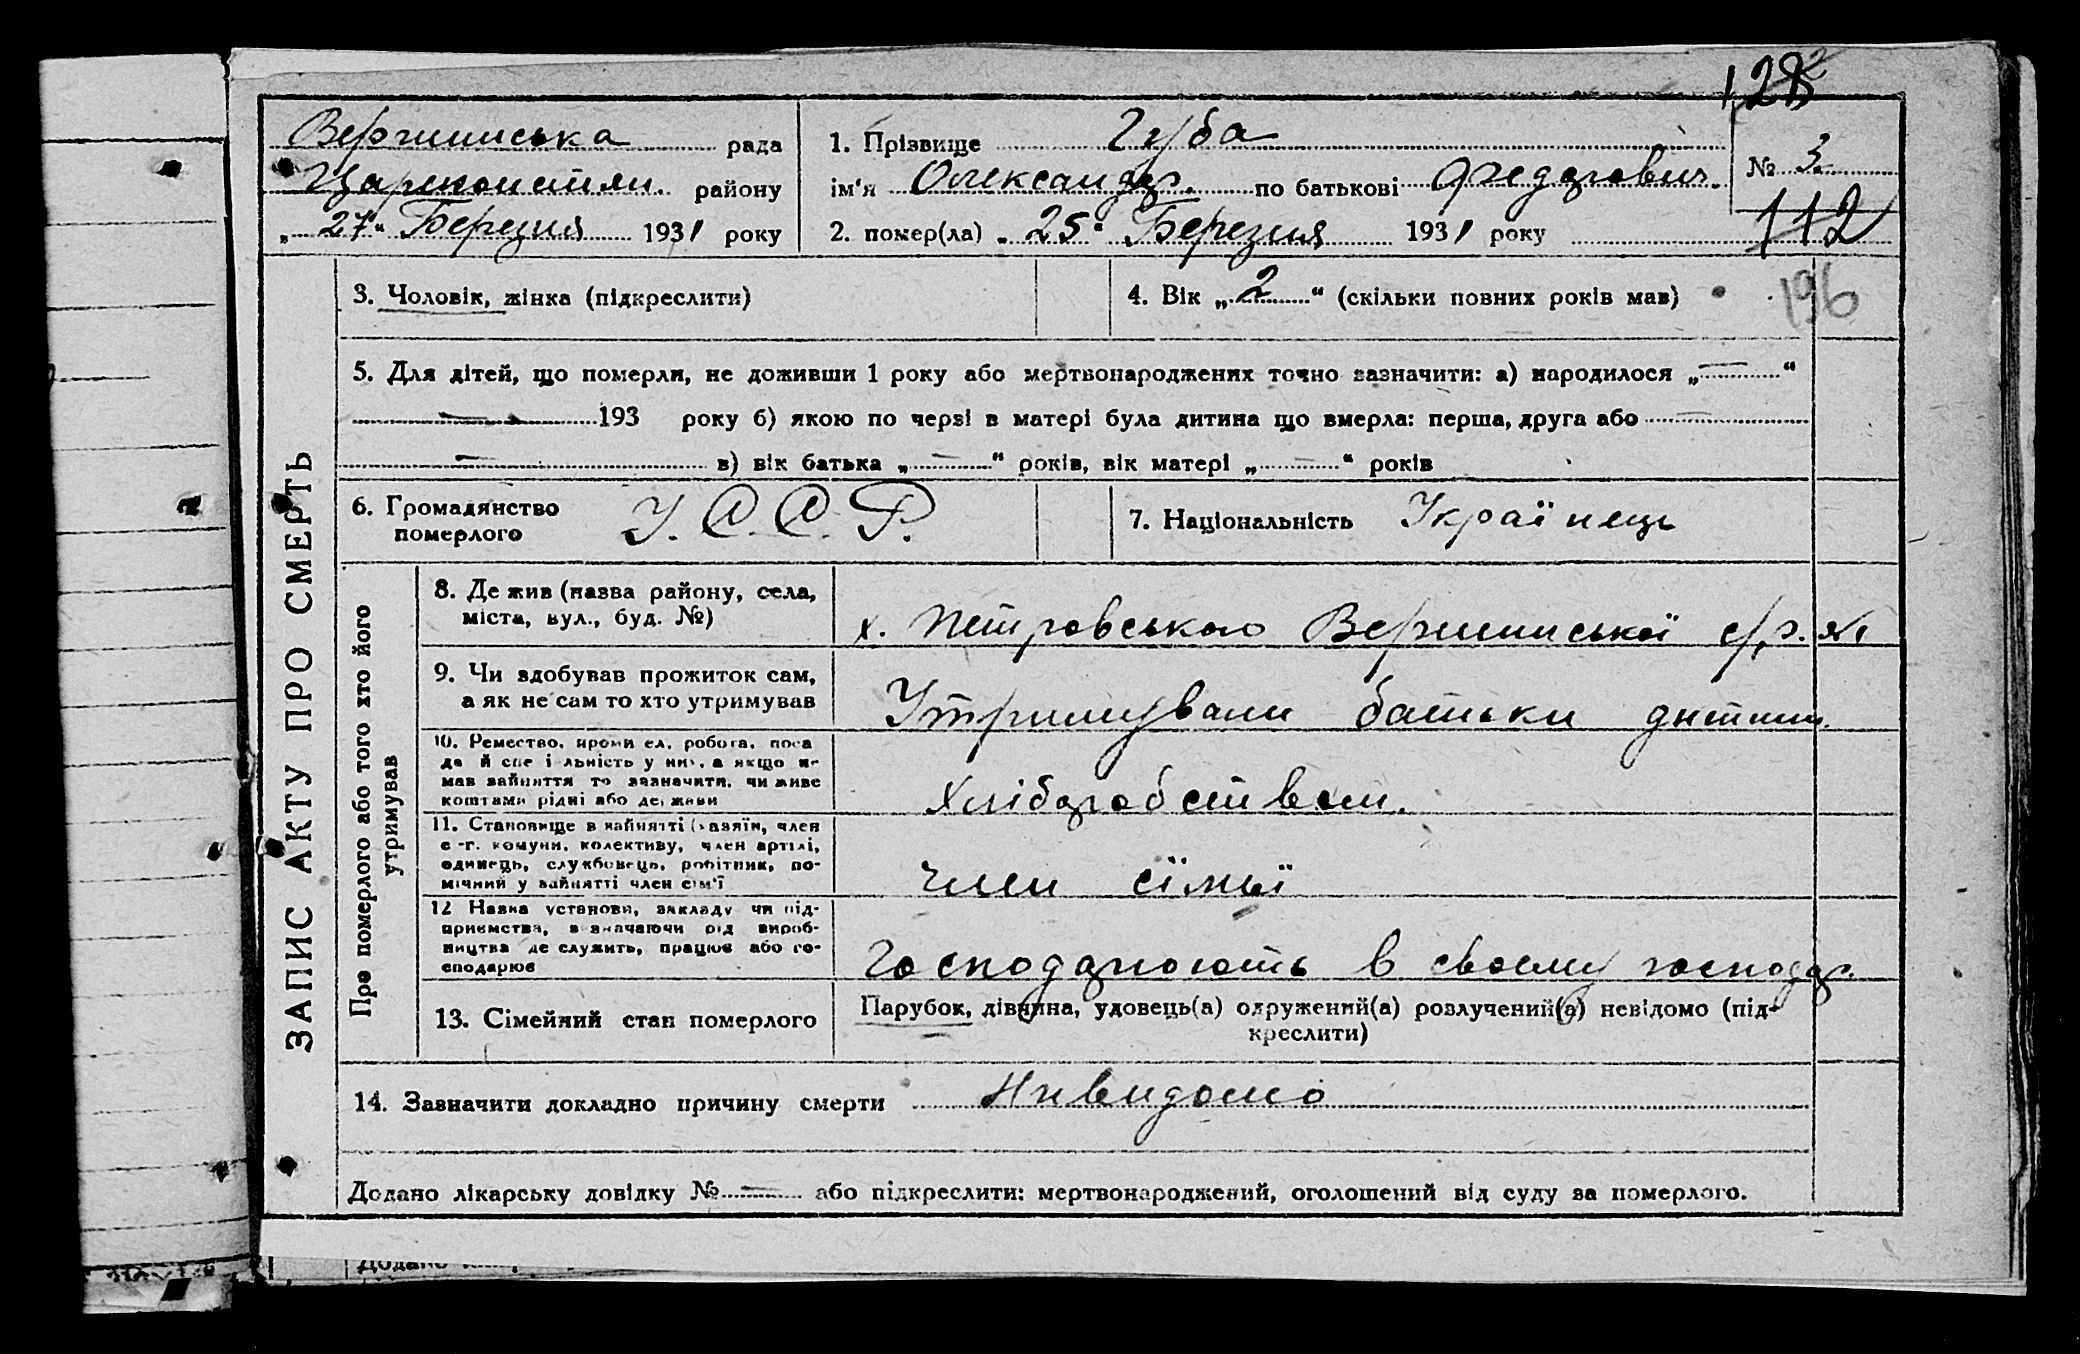 128
Вершинська рада
Цареконстян. району
„27“ Березня 1931 року
1. Прізвище Губа
ім'я Олександр. по батькові Федорович.
2. помер(ла) „25“ Березня 1931 року
№ 3
112
196
3. Чоловік, жінка (підкреслити)
4. Вік „2“ (скільки повних років мав)
5. Для дітей, що померли, не доживши 1 року або мертвонароджених точно зазначити: а) народилося „—“
— 193 року б) якою по черзі в матері була дитина що вмерла: перша, друга або —
— в) вік батька „—“ років, вік матері „—“ років
6. Громадянство
померлого
У.С.С.Р.
7. Національність Українець
ЗАПИС АКТУ ПРО СМЕРТЬ
Про померлого або того хто його
утримував
8. Де жив (назва району, села,
міста, вул., буд. №)
х. Петровського Вершинської с/р.
9. Чи здобував прожиток сам,
а як не сам то хто утримував
Утримували батьки дитини.
10. Ремество, робота, поса
да й у а якщо не
мав зайняття то зазначити, чи живе
коштами рідні або держави
Хліборобством.
11. Становище в зайнятті (хазяїн, член
с.-г. комуни, колективу, член артілі,
одинець, службовець, робітник, по-
мічний у зайнятті член сім'ї
член сімьї
12 Назва установи, закладу чи під-
приємства, зазначаючи рід вироб-
ництва де служить, працює або го-
сподарює
Господарюють в своему господар.
13. Сімейний стан померлого
Парубок, дівчина, удовець(а) одружений(а) розлучений(а) невідомо (під-
креслити)
14. Зазначити докладно причину смерти Нивидомо
Додано лікарську довідку № — або підкреслити: мертвонароджений, оголошений від суду за померлого.
Додано